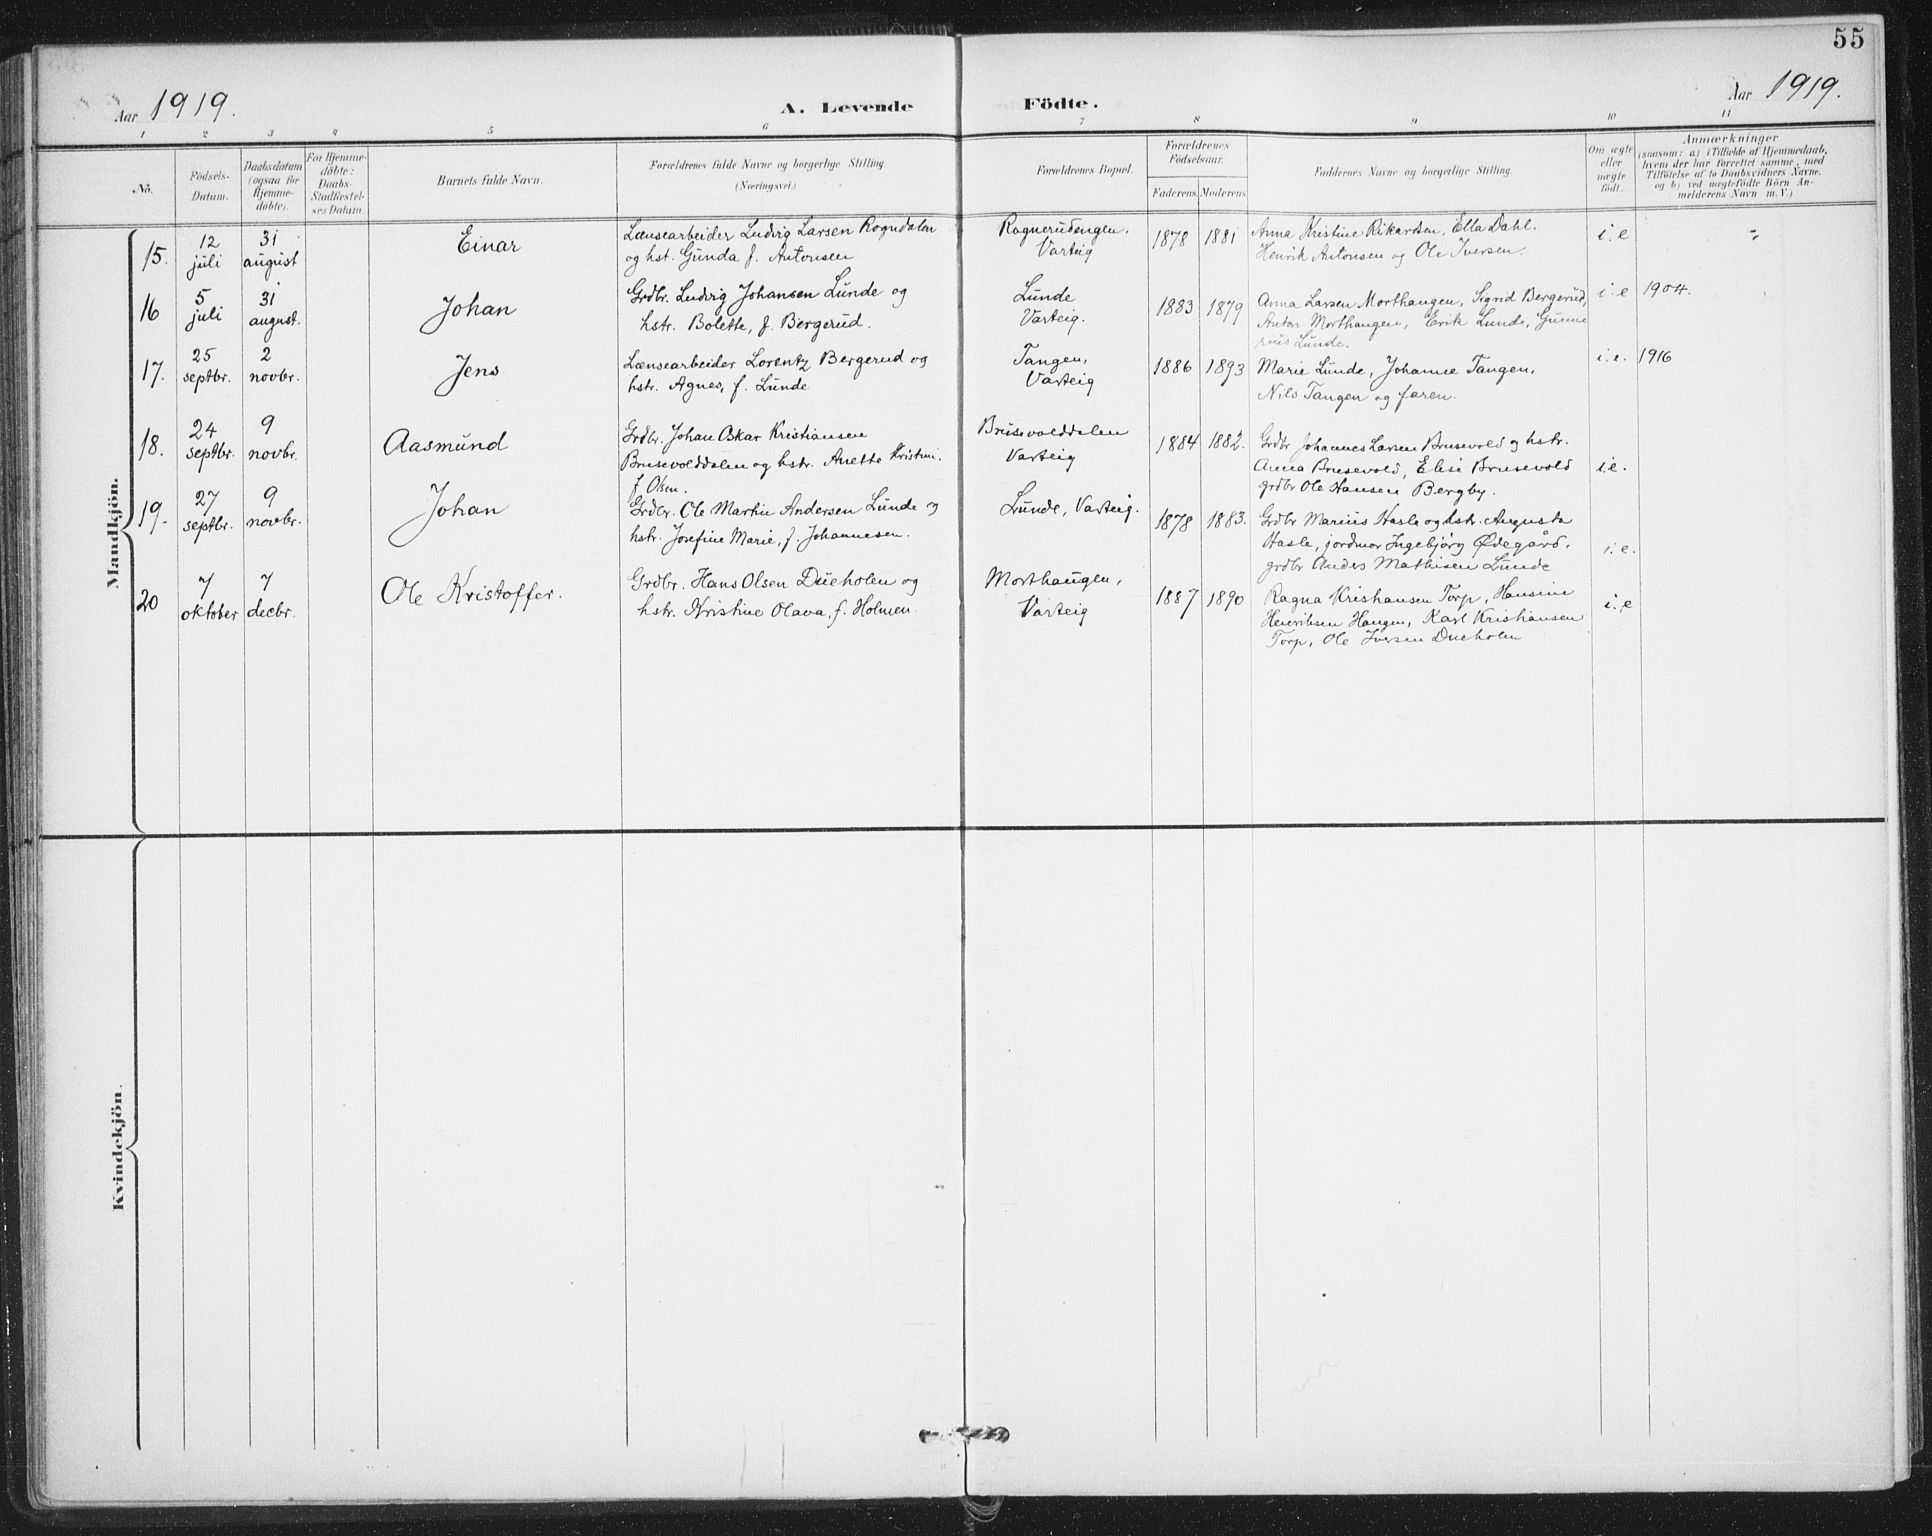 55
Aar 1919.
A. Levende Födte.
Aar 1919.
1 2 3 4 5 6 7 8 9 10 11
No.
Födsels-
Datum.
Daabsdatum
(ogsaa for
Hjemme-
döbte).
For Hjemme-
döbte:
Daabs-
Stadfæstel-
ses Datum.
Barnets fulde Navn.
Forældrenes fulde Navne og borgerlige Stilling.
(Næringsvei.)
Forældrenes Bopæl.
Forældrenes
Födselsaar.
Faderens. Moderens.
Faddernes Navne og borgerlige Stilling.
Om ægte
eller
uægte
födt.
Anmærkninger
(saasom: a) i Tilfælde af Hjemmedaab,
hvem der har forrettet samme, med
Tilföielse af to Daabsvidners Navne,
og b) ved uægtefödte Börn An-
melderens Navn m. V.)
Mandkjön.
15.
12
juli
31
august
Einar
Lænsearbeider Ludvig Larsen Rogndalen
og hst. Gunda f. Antonsen
Ragnerudengen,
Varteig
1878 1881
Anna Kristine Rikardsen, Ella Dahl.
Henrik Antonsen og Ole Iversen.
i.e
"
16
5
juli
31
august.
Johan
Grdbr. Ludvig Johansen Lunde og
hstr. Bolette, f. Bergerud.
Lunde
Varteig.
1883 1879
Anna Larsen Morthaugen, Sigrid Bergerud,
Anton Morthaugen, Erik Lunde, Gunne
rius Lunde.
i.e
1904.
17.
25
septbr.
2
novbr.
Jens
Lænsearbeider Lorentz Bergerud og
hstr. Agnes, f. Lunde
Tangen,
Varteig
1886 1893
Marie Lunde, Johanne Tangen,
Nils Tangen og faren.
i.e.
1916
18.
24
septbr.
9
novbr.
Aasmund
Grdbr. Johan Oskar Kristiansen
Brusevolddalen og hstr. Anette Kristine.
f. Olsen.
Brusevolddalen
Varteig
1884 1882.
Grdbr Johannes Larsen Brusevold og hstr.
Anna Brusevold, Elise Brusevold
grdbr Ole Hansen Bergby.
i.e.
19.
27
septbr.
9
novbr.
Johan
Grdbr. Ole Martin Andersen Lunde og
hstr. Josefine Marie, f. Johannesen.
Lunde, Varteig.
1878 1883.
Grdbr Marius Hasle og hstr. Augusta
Hasle, jordmor Ingebjörg Ødegård.
grdbr Anders Mathisen Lunde
i.e.
20
7
oktober
7
decbr.
Ole Kristoffer.
Grdbr. Hans Olsen Dueholen og
hstr. Kristine Olava, f. Holmen.
Morthaugen,
Varteig
1887 1890
Ragna Kristiansen Torp, Hansine
Henriksen Haugen, Karl Kristiansen
Torp, Ole Iversen Dueholen
i.e
Kvindekjön.